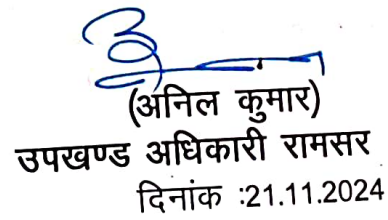 (अनिल कुमार)
उपखण्ड अधिकारी रामसर
दिनांक :21.11.2024